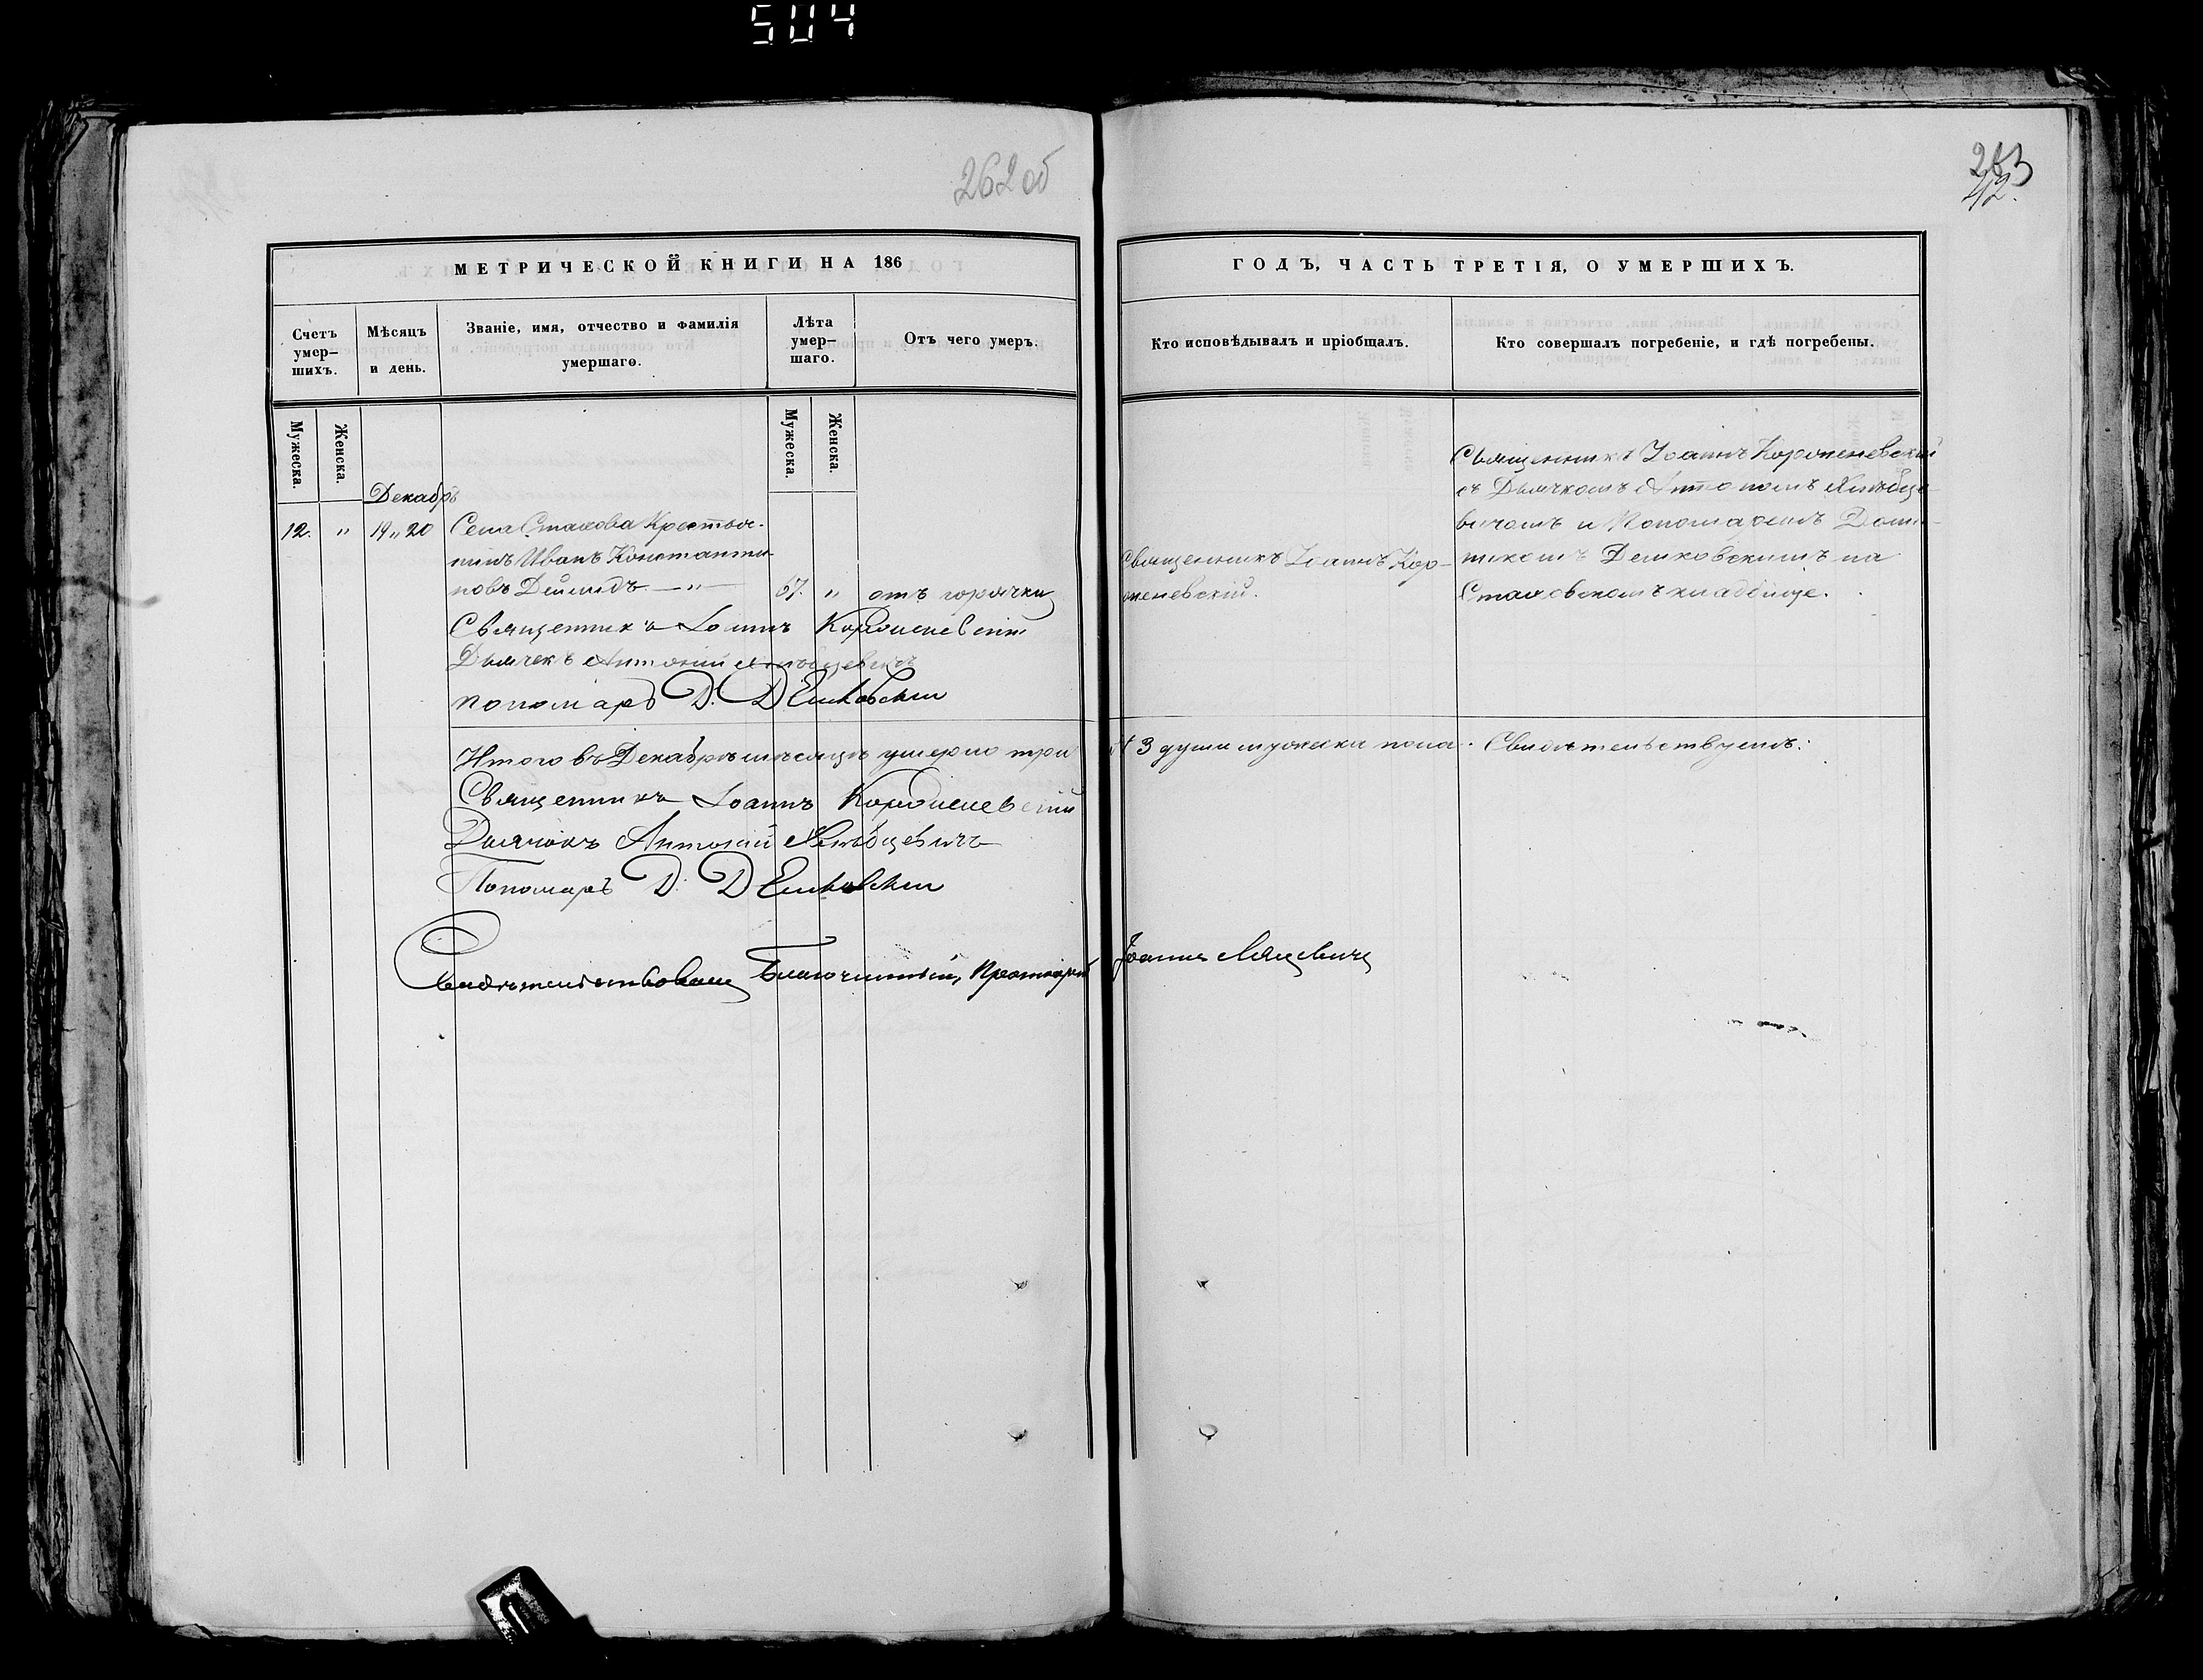 504
262об
263
42.
МЕТРИЧЕСКОЙ КНИГИ НА 186
ГОДЪ, ЧАСТЬ ТРЕТІЯ, О УМЕРШИХЪ.
Счетъ умер-
шихъ.
Мѣсяцъ
и день.
Званіе, имя, отчество и фамилія
умершаго.
Лѣта
умер-
шаго.
Отъ чего умеръ.
Кто исповѣдывалъ и пріобщалъ.
Кто совершалъ погребеніе, и гдѣ погребены.
Мужеска.
Женска.
Мужеска.
Женска.
Декабрь
12. " 19 " 20 Села Стахова Крестья-
нинъ Иванъ Константи-
новъ Демидъ — " — 67. " отъ горячки
Священникъ Іоаннъ Кор-
женевскій.
Священникъ Іоаннъ Корженевскій
съ Дьячкомъ Антоніемъ Хлѣбце-
вичомъ и Пономаремъ Доми-
никомъ Дешковскимъ на
Стаховскомъ кладбище.
Священникъ Іоаннъ Корженевскій
Дьячекъ Антоній Хлѣбцевичъ
пономаръ Д. Дешковскій
Итого въ Декабрѣ мѣсяцѣ умерло три 3 души мужеска пола. Свидѣтельствуемъ:
Священникъ Іоаннъ Корженевскій
Дьячокъ Антоній Хлѣбцевичъ
Пономаръ Д. Дешковскій
Свидѣтельствовалъ Благочинный, Протоіерей Іоаннъ